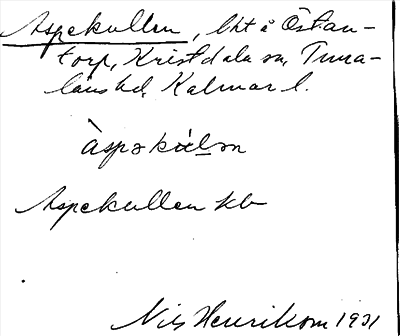 Aspekullen, lht å Östan-
torp, Kristdala sn, Tuna-
läns hd, Kalmar l.
àspəkùlən
Aspekullen kb
Nils Henrikson 1931